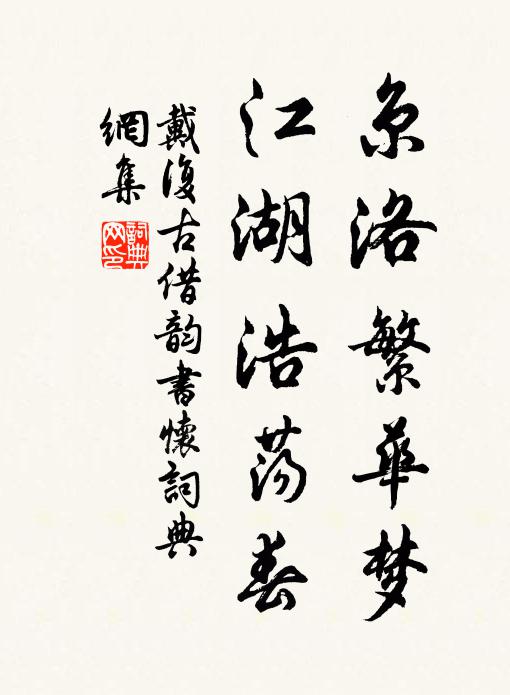 京洛繁華梦
江湖浩荡春
戴復古借韵書懷詞典
網集
詞典网印